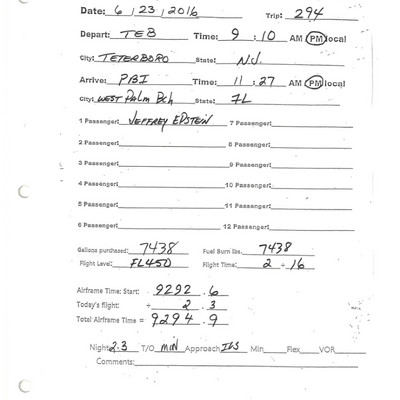 Date: 6 / 23 / 2016 Trip: 294
Depart: TEB Time: 9 : 10 AM PM local
City: TETERBORO State: N.J.
Arrive: PBI Time: 11 : 27 AM PM local
City: WEST Palm Bch State: FL
1 Passenger: JEFFREY EPSTEIN 7 Passenger:
2 Passenger: 8 Passenger:
3 Passenger: 9 Passenger:
4 Passenger: 10 Passenger:
5 Passenger: 11 Passenger:
6 Passenger: 12 Passenger:
Gallons purchased: 7438 Fuel Burn lbs. 7438
Flight Level: FL450 Flight Time: 2 + 16
Airframe Time: Start: 9292 . 6
Today's flight: + 2 . 3
Total Airframe Time = 9294 . 9
Night 2.3 T/O min Approach ILS Min Flex VOR
Comments: